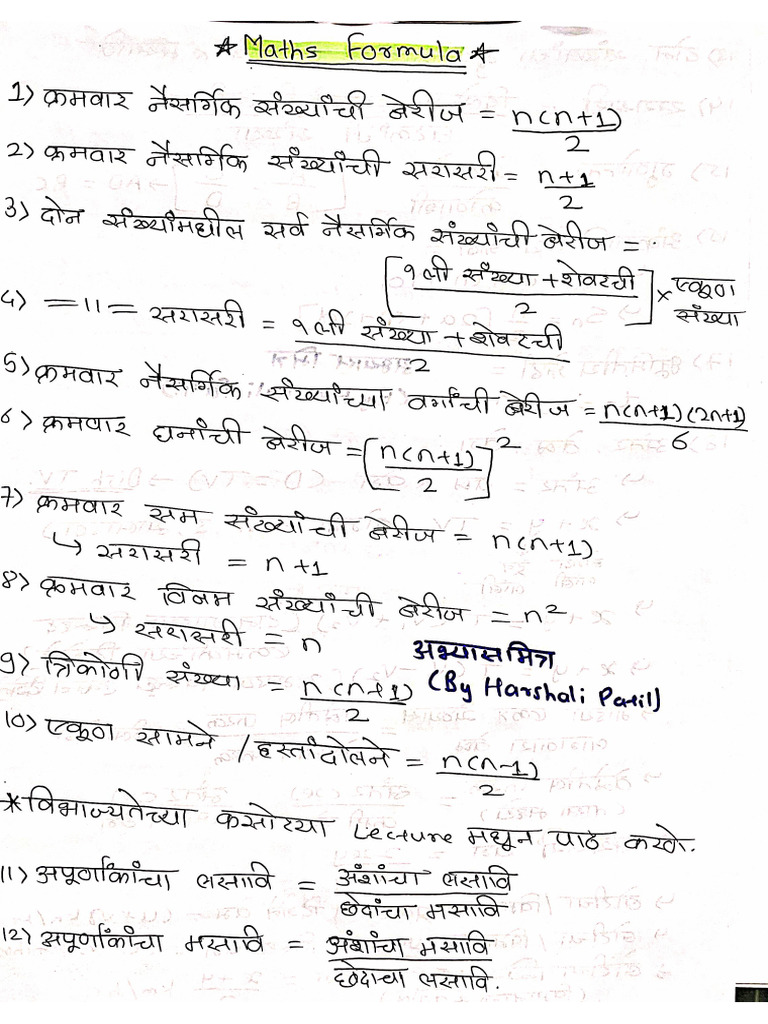 ★ Maths Formula ★
1) क्रमवार नैसर्गिक संख्यांची बेरीज = n(n+1)/2
2) क्रमवार नैसर्गिक संख्यांची सरासरी = n+1/2
3) दोन संख्यांमधील सर्व नैसर्गिक संख्यांची बेरीज =
[१ली संख्या + शेवटची/2] × एकूण संख्या
4) =॥= सरासरी = १ली संख्या + शेवटची/2
5) क्रमवार नैसर्गिक संख्यांच्या वर्गांची बेरीज = n(n+1)(2n+1)/6
6) क्रमवार घनांची बेरीज = [n(n+1)/2]²
7) क्रमवार सम संख्यांची बेरीज = n(n+1)
↳ सरासरी = n+1
8) क्रमवार विषम संख्यांची बेरीज = n²
↳ सरासरी = n
अभ्यासमित्र
(By Harshali Patil)
9) त्रिकोणी संख्या = n(n+1)/2
10) एकूण सामने / हस्तांदोलने = n(n-1)/2
* विभाज्यतेच्या कसोट्या Lecture मधून पाठ करणे.
11) अपूर्णांकांचा लसावि = अंशांचा लसावि/छेदांचा मसावि
12) अपूर्णांकांचा मसावि = अंशांचा मसावि/छेदाचा लसावि.